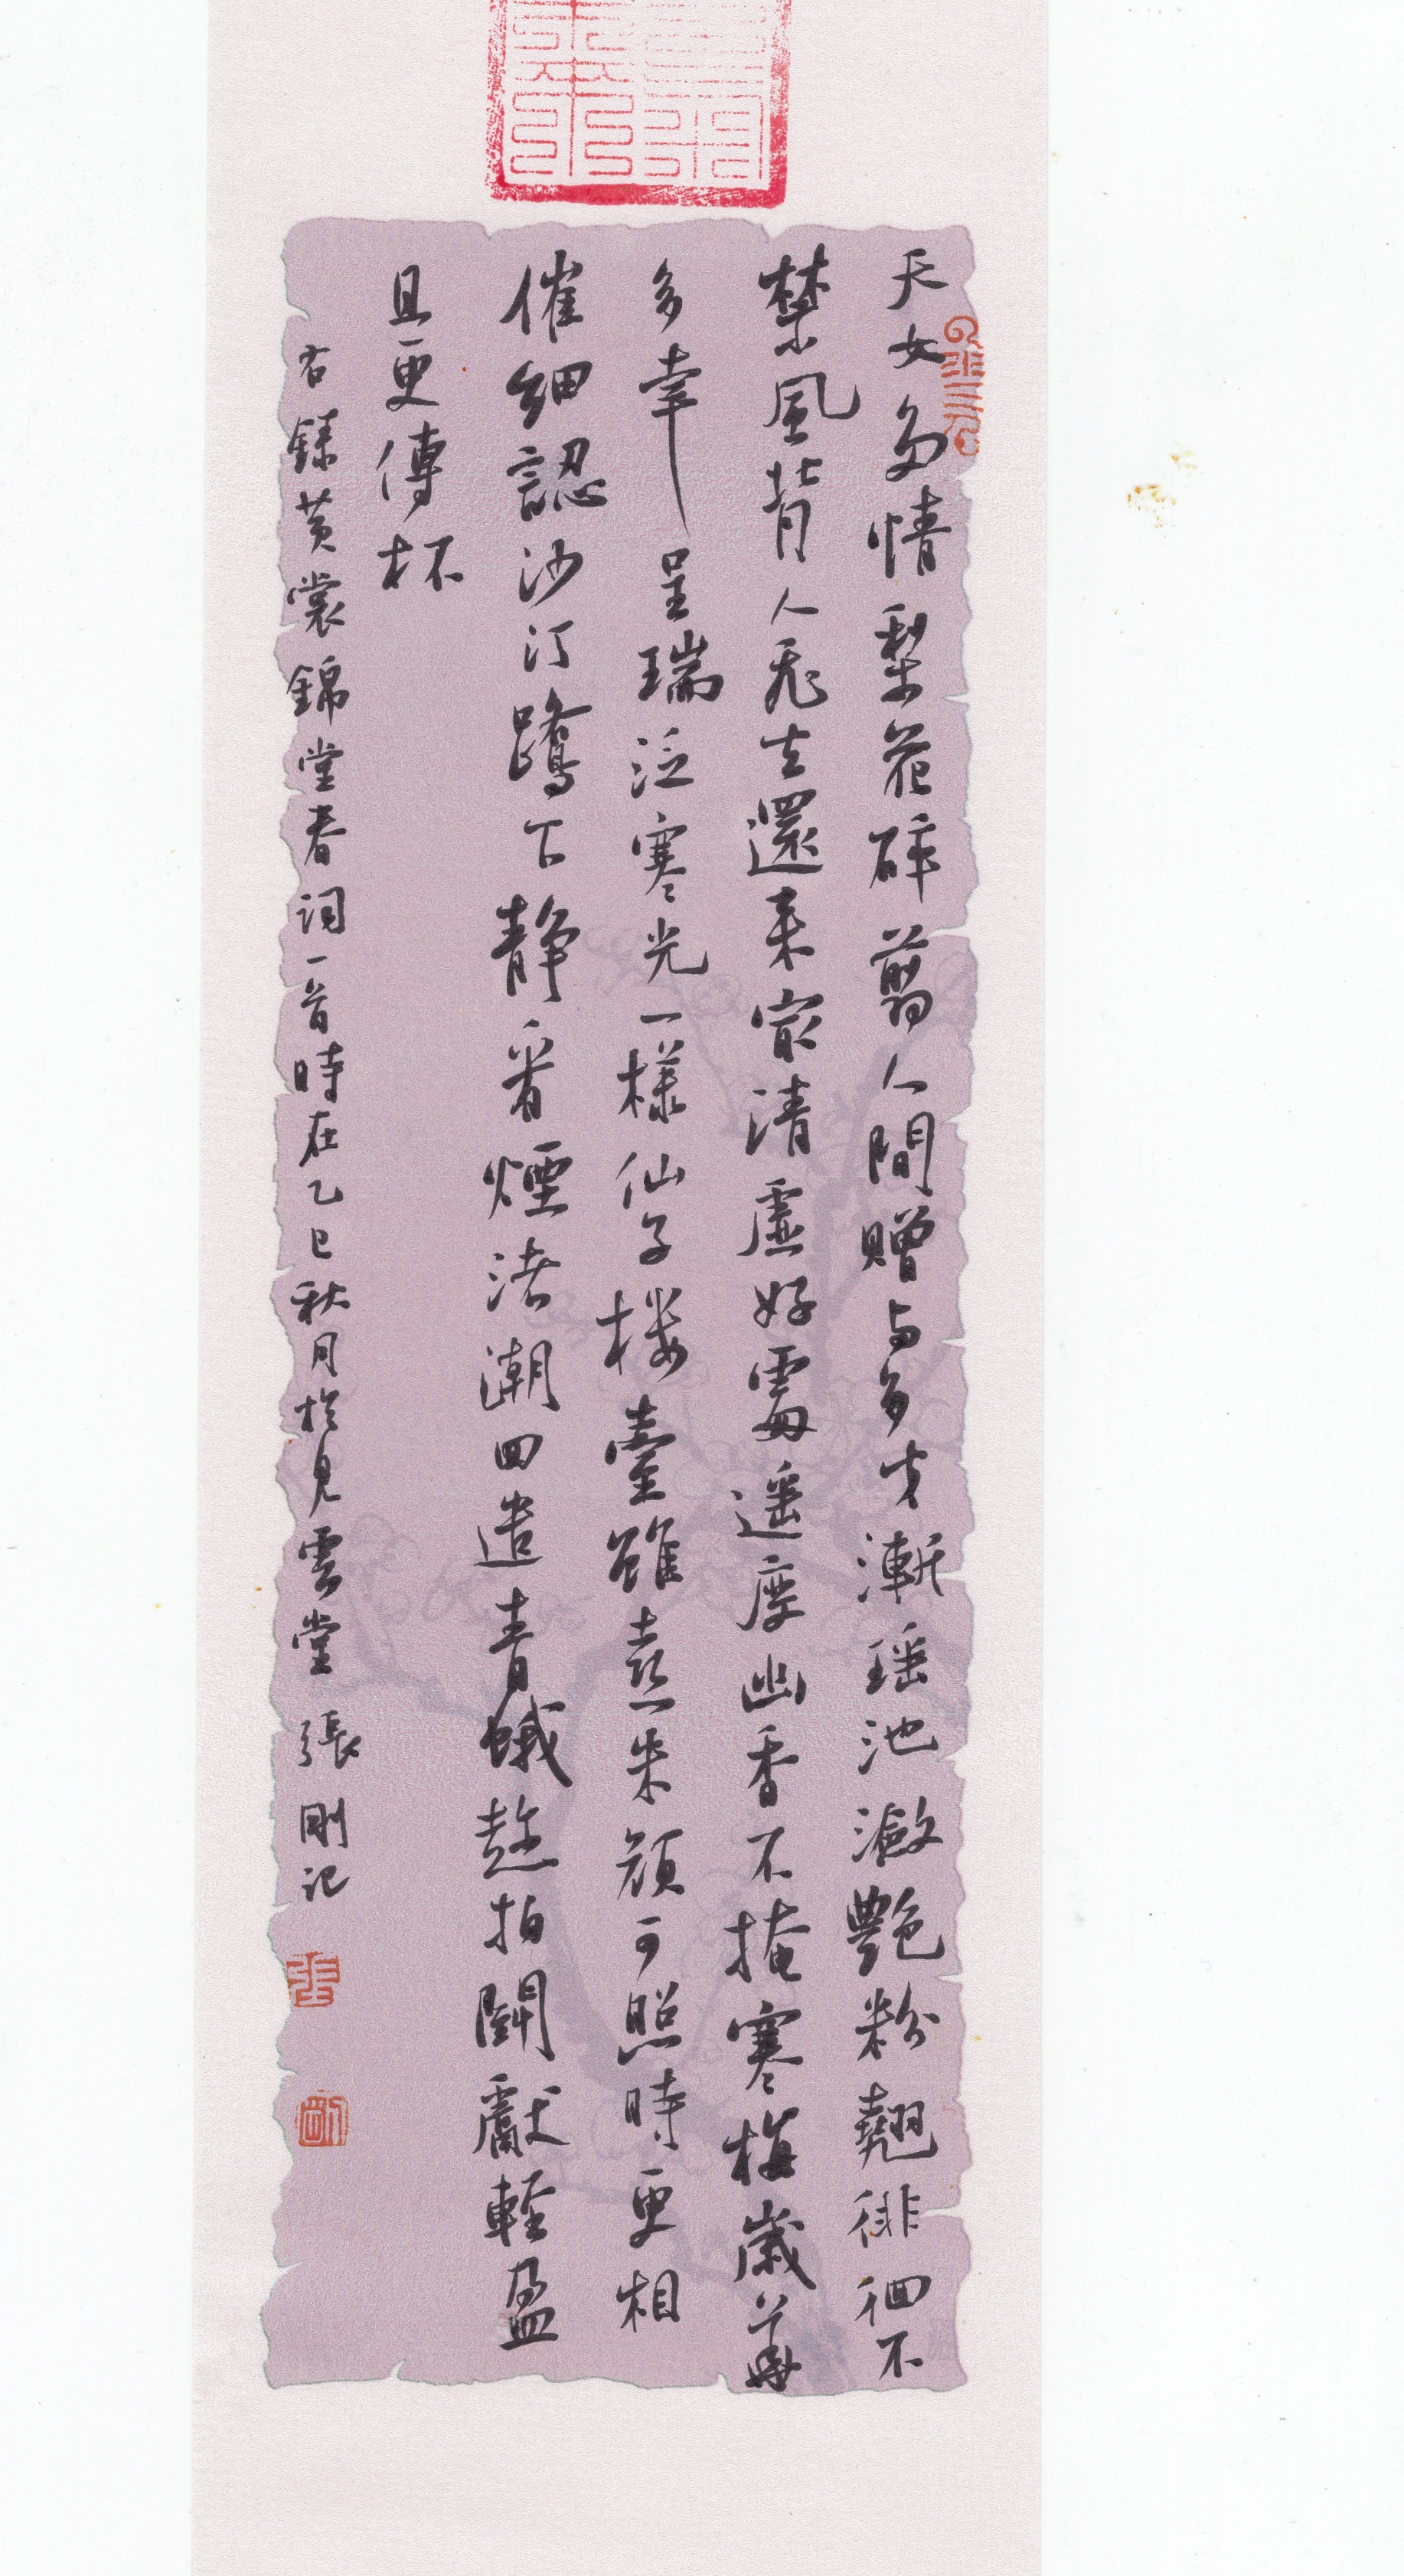 天女多情梨花碎剪人間贈与多才漸瑶池潋艷粉翹徘徊不
禁風背人飛去還来寂清虛好處遥度幽香不掩寒梅歲華
多幸呈瑞泛寒光一樣仙子楼臺雖喜朱顔可照時更相
催細認沙汀鷺下静看煙渚潮回遣青娥趁拍鬭獻輕盈
且更傳杯
右錄黄裳錦堂春詞一首時在乙巳秋月於見雲堂張剛記